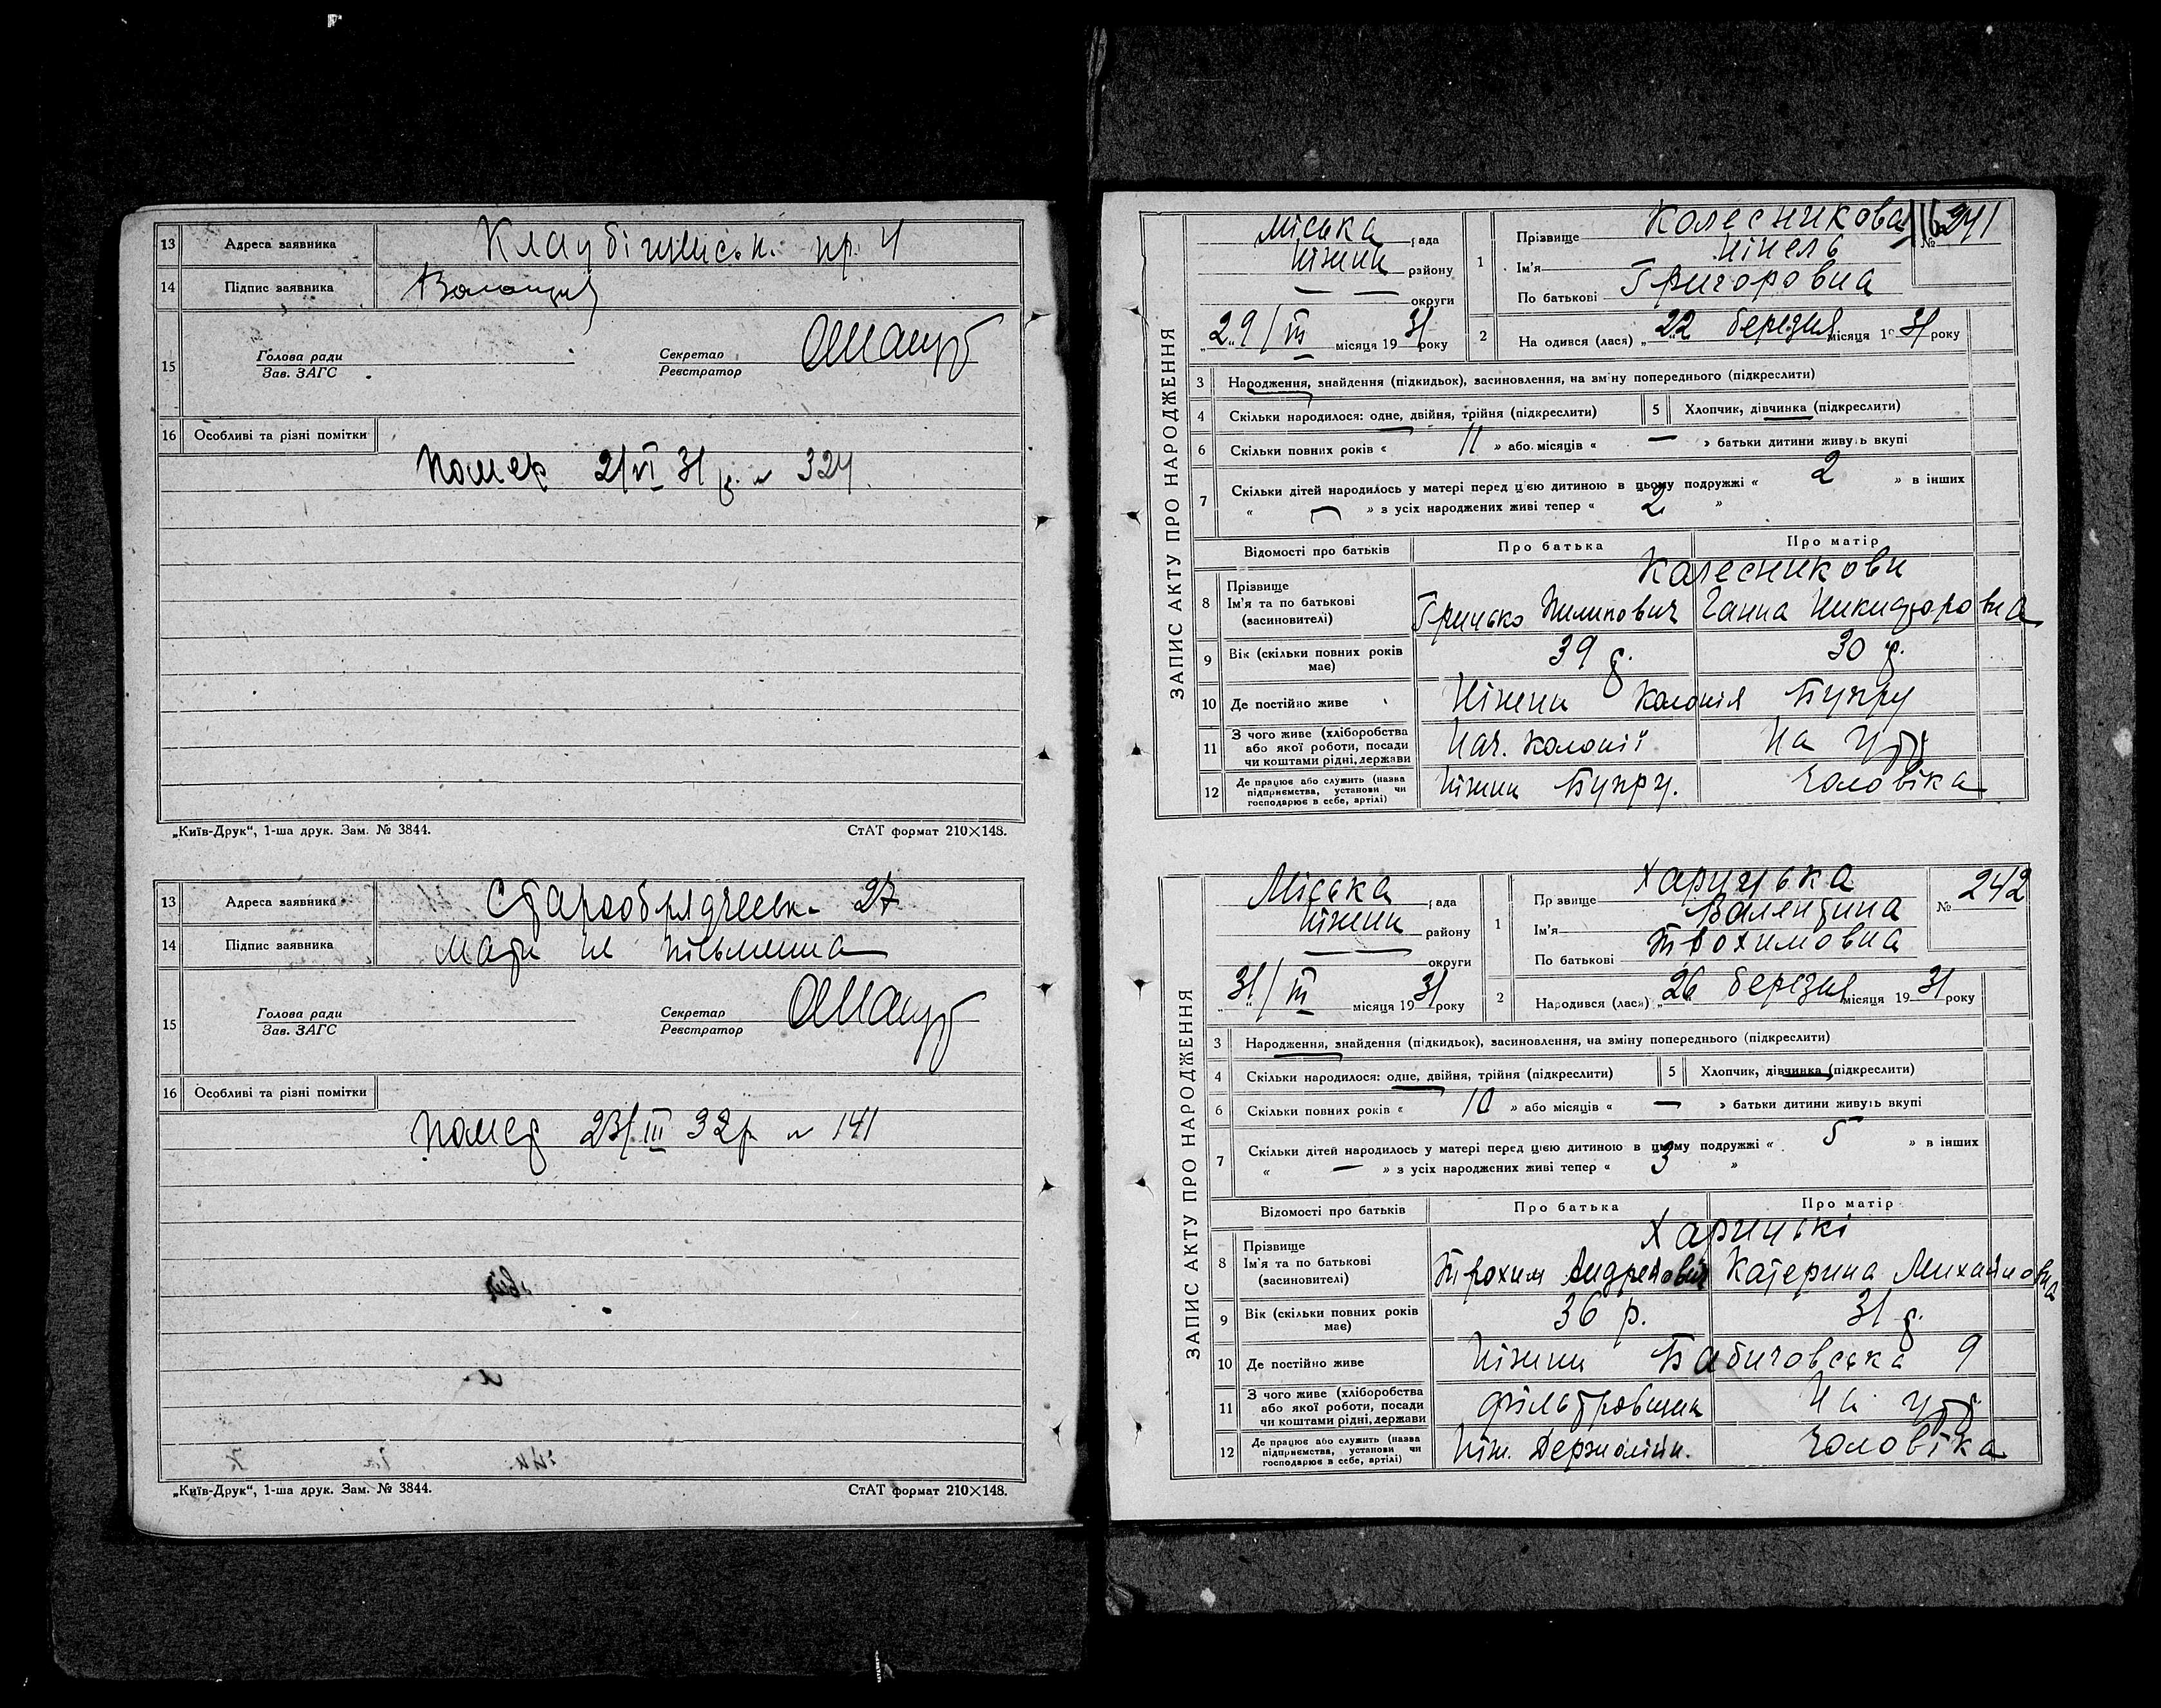 13 Адреса заявника пр. 4
14 Підпис заявника
15 Голова ради Секретар
Зав. ЗАГС Реєстратор
16 Особливі та різні помітки
помер 21/VI 31 р. № 324
„Київ-Друк“, 1-ша друк. Зам. № 3844. СтАТ формат 210×148.
13 Адреса заявника Старообрядчеськ. 27
14 Підпис заявника мати не письменна
15 Голова ради Секретар
Зав. ЗАГС Реєстратор
16 Особливі та різні помітки
помер 23/III 32 р № 141
„Київ-Друк“, 1-ша друк. Зам. № 3844. СтАТ формат 210×148.
ЗАПИС АКТУ ПРО НАРОДЖЕННЯ
Міська рада
Ніжин району
округи
„29/III місяця 1931 року
1 Прізвище Колесникова № 241
Ім'я Нінель
По батькові Григоровна
2 Народився (лася) „22 березня місяця 1931 року
3 Народження, знайдення (підкидьок), засиновлення, на зміну попереднього (підкреслити)
4 Скільки народилося: одне, двійня, трійня (підкреслити) 5 Хлопчик, дівчинка (підкреслити)
6 Скільки повних років « 11 » або місяців « — » батьки дитини живуть вкупі
7 Скільки дітей народилось у матері перед цією дитиною в цьому подружжі « 2 » в інших
« — » з усіх народжених живі тепер « 2 »
Відомості про батьків Про батька Про матір
8 Прізвище Колесникови
Ім'я та по батькові Грицько Пилипович Ганна Никифоровна
(засиновителі)
9 Вік (скільки повних років має) 39 р. 30 р.
10 Де постійно живе Ніжин Колонія Бупру
11 З чого живе (хліборобства Нач. колонії На утр
або якої роботи, посади
чи коштами рідні, держави
12 Де працює або служить (назва Ніжин Бупру. чоловіка
підприємства, установи чи
господарює в себе, артілі)
ЗАПИС АКТУ ПРО НАРОДЖЕННЯ
Міська рада
Ніжин району
округи
„31/III місяця 1931 року
1 Прізвище Харицька № 242
Ім'я Валентина
По батькові Трохимовна
2 Народився (лася) „26 березня місяця 1931 року
3 Народження, знайдення (підкидьок), засиновлення, на зміну попереднього (підкреслити)
4 Скільки народилося: одне, двійня, трійня (підкреслити) 5 Хлопчик, дівчинка (підкреслити)
6 Скільки повних років « 10 » або місяців « — » батьки дитини живуть вкупі
7 Скільки дітей народилось у матері перед цією дитиною в цьому подружжі « 5 » в інших
« — » з усіх народжених живі тепер « 3 »
Відомості про батьків Про батька Про матір
8 Прізвище Харицькі
Ім'я та по батькові Трохим Андреєвич Катерина Михайловна
(засиновителі)
9 Вік (скільки повних років має) 36 р. 31 р.
10 Де постійно живе Ніжин Бабичовська 9
11 З чого живе (хліборобства фільтровщик На утр
або якої роботи, посади
чи коштами рідні, держави
12 Де працює або служить (назва Ніж. чоловіка
підприємства, установи чи
господарює в себе, артілі)